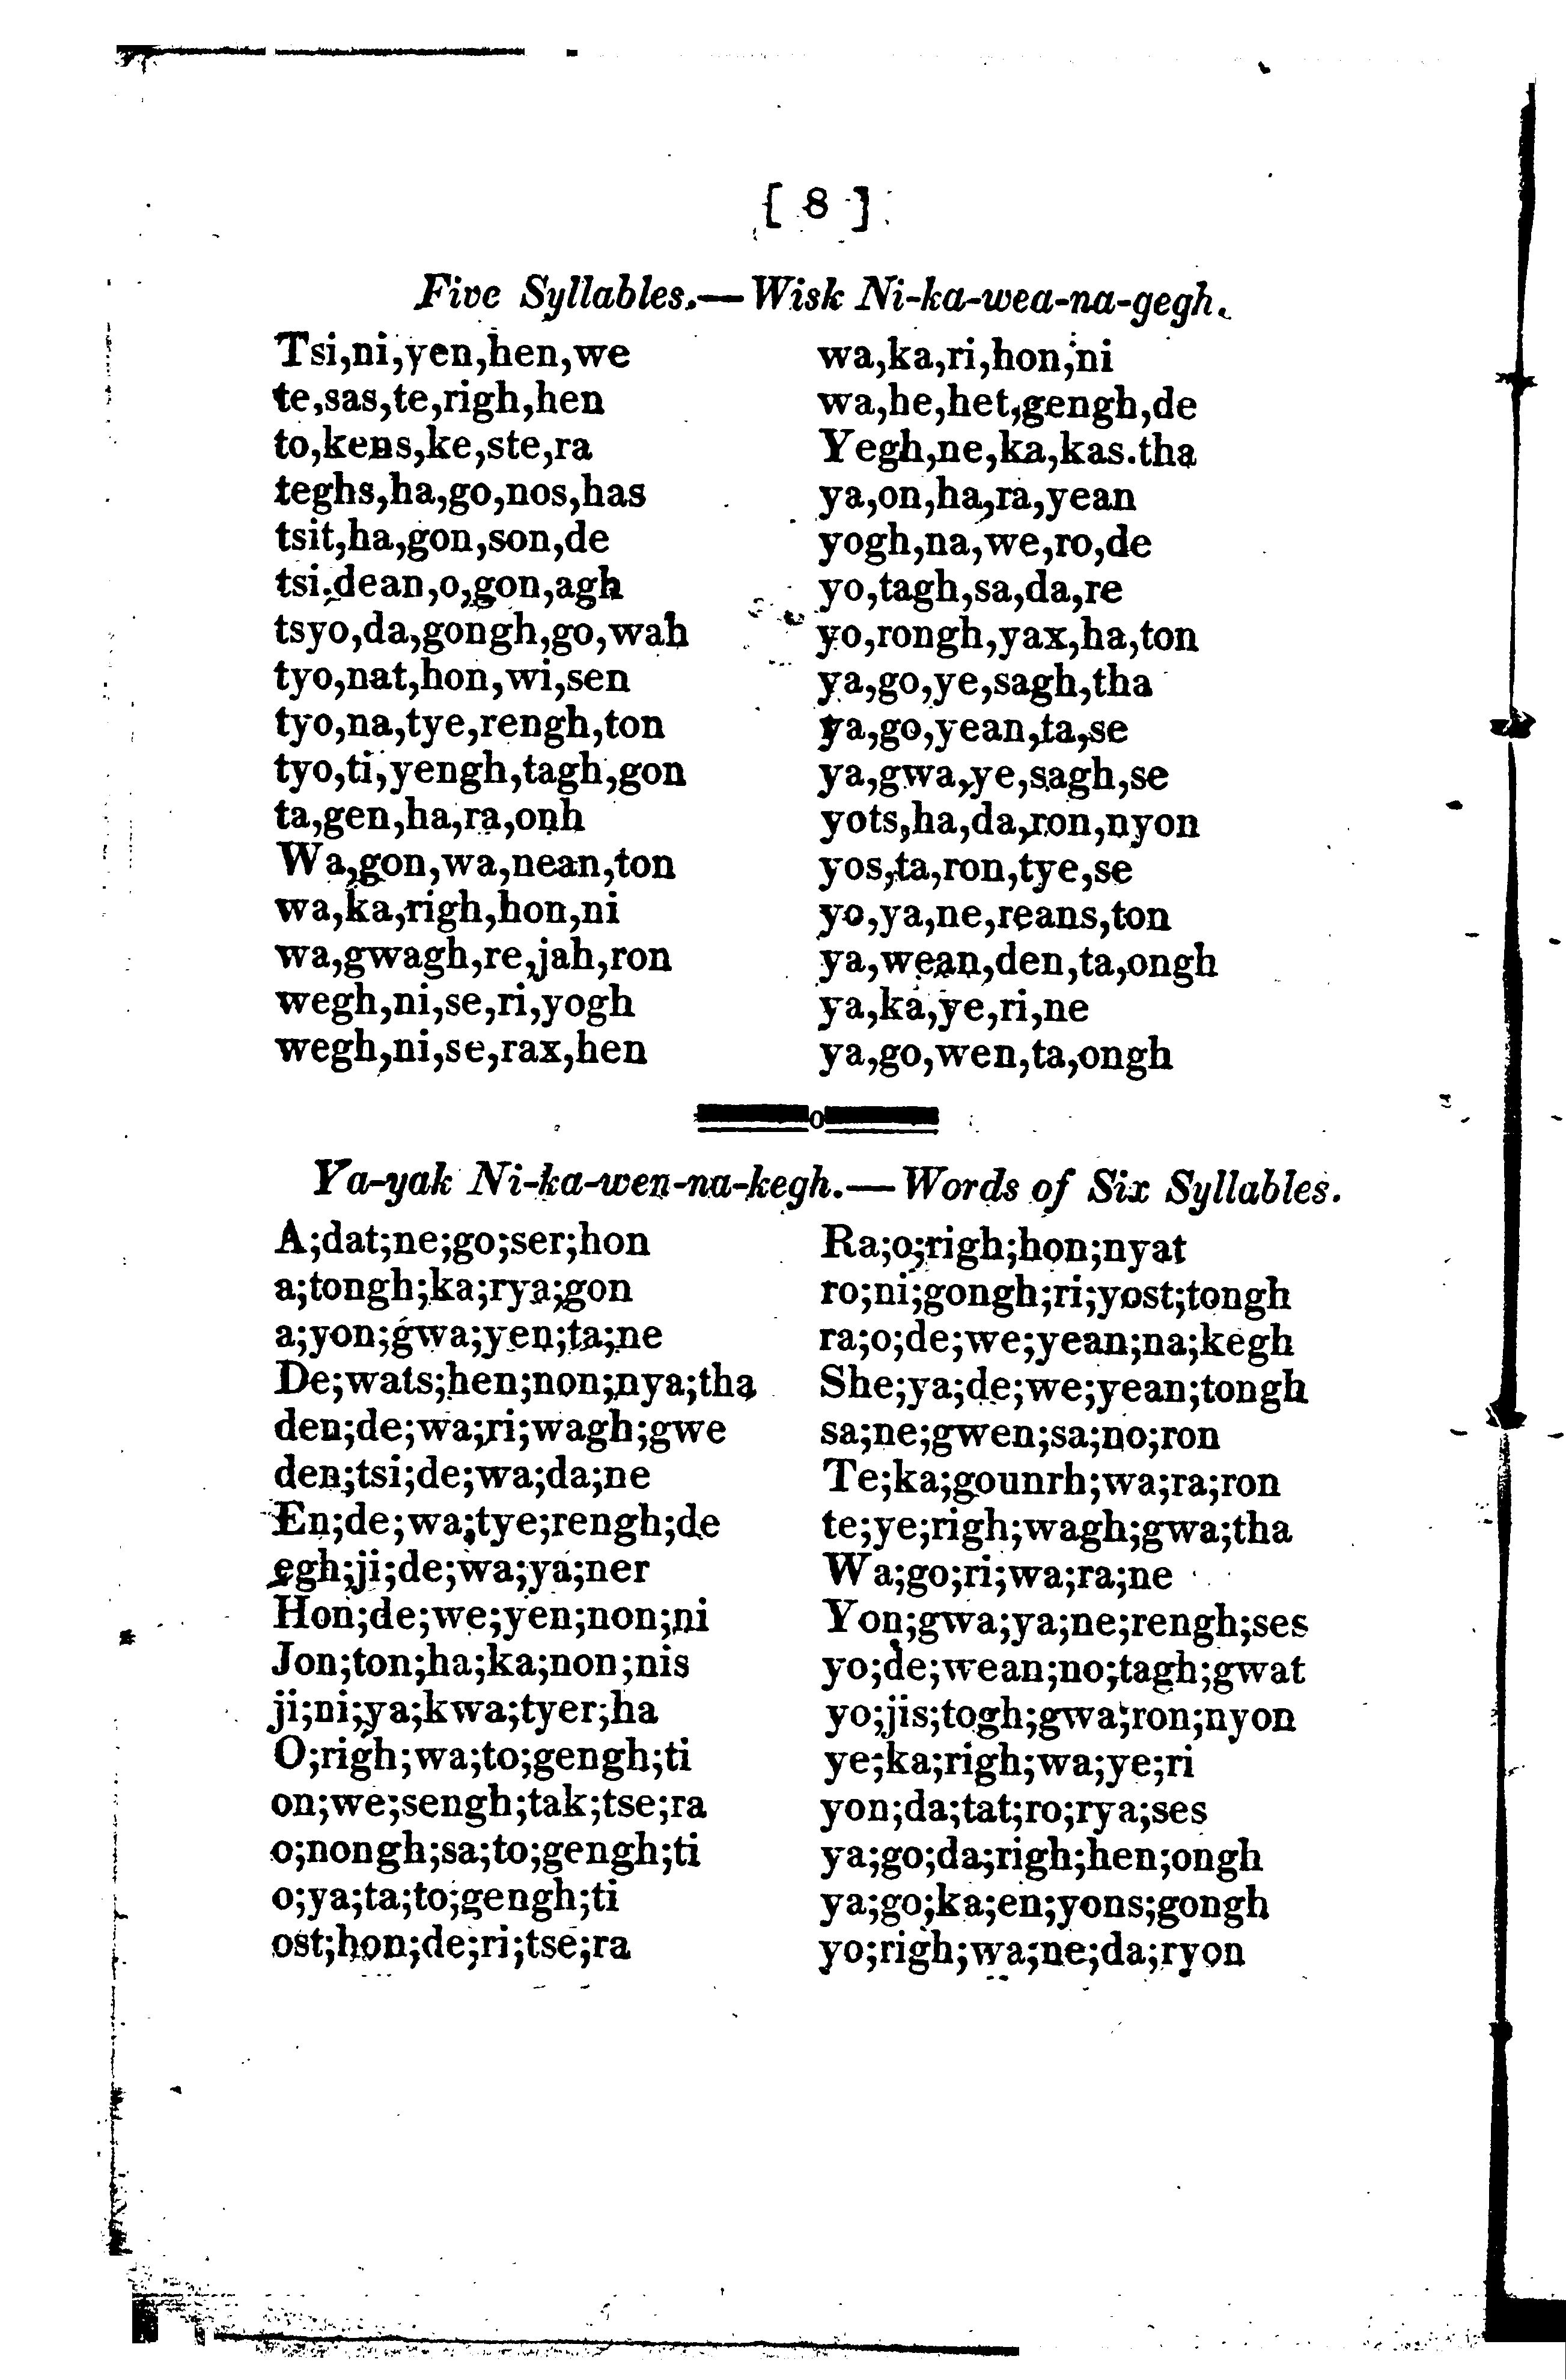 [ 8 ]
Five Syllables.—Wisk Ni-ka-wea-na-gegh.
Tsi,ni,yen,hen,we
te,sas,te,righ,hen
to,kens,ke,ste,ra
teghs,ha,go,nos,has
tsit,ha,gon,son,de
tsi.dean,o,gon,agh
tsyo,da,gongh,go,wah
tyo,nat,hon,wi,sen
tyo,na,tye,rengh,ton
tyo,ti,yengh,tagh,gon
ta,gen,ha,ra,onh
Wa,gon,wa,nean,ton
wa,ka,righ,hon,ni
wa,gwagh,re,jah,ron
wegh,ni,se,ri,yogh
wegh,ni,se,rax,hen
wa,ka,ri,hon,ni
wa,he,het,gengh,de
Yegh,ne,ka,kas.tha
ya,on,ha,ra,yean
yogh,na,we,ro,de
yo,tagh,sa,da,re
yo,rongh,yax,ha,ton
ya,go,ye,sagh,tha
ya,go,yean,ta,se
ya,gwa,ye,sagh,se
yots,ha,da,ron,nyon
yos,ta,ron,tye,se
yo,ya,ne,reans,ton
ya,wean,den,ta,ongh
ya,ka,ye,ri,ne
ya,go,wen,ta,ongh
Ya-yak Ni-ka-wen-na-kegh.—Words of Six Syllables.
A;dat;ne;go;ser;hon
a;tongh;ka;rya;gon
a;yon;gwa;yen;ta;ne
De;wats;hen;non;nya;tha
den;de;wa;ri;wagh;gwe
den;tsi;de;wa;da;ne
En;de;wa;tye;rengh;de
egh;ji;de;wa;ya;ner
Hon;de;we;yen;non;ni
Jon;ton;ha;ka;non;nis
ji;ni;ya;kwa;tyer;ha
O;righ;wa;to;gengh;ti
on;we;sengh;tak;tse;ra
o;nongh;sa;to;gengh;ti
o;ya;ta;to;gengh;ti
ost;hon;de;ri;tse;ra
Ra;o;righ;hon;nyat
ro;ni;gongh;ri;yost;tongh
ra;o;de;we;yean;na;kegh
She;ya;de;we;yean;tongh
sa;ne;gwen;sa;no;ron
Te;ka;gounrh;wa;ra;ron
te;ye;righ;wagh;gwa;tha
Wa;go;ri;wa;ra;ne
Yon;gwa;ya;ne;rengh;ses
yo;de;wean;no;tagh;gwat
yo;jis;togh;gwa;ron;nyon
ye;ka;righ;wa;ye;ri
yon;da;tat;ro;rya;ses
ya;go;da;righ;hen;ongh
ya;go;ka;en;yons;gongh
yo;righ;wa;ne;da;ryon